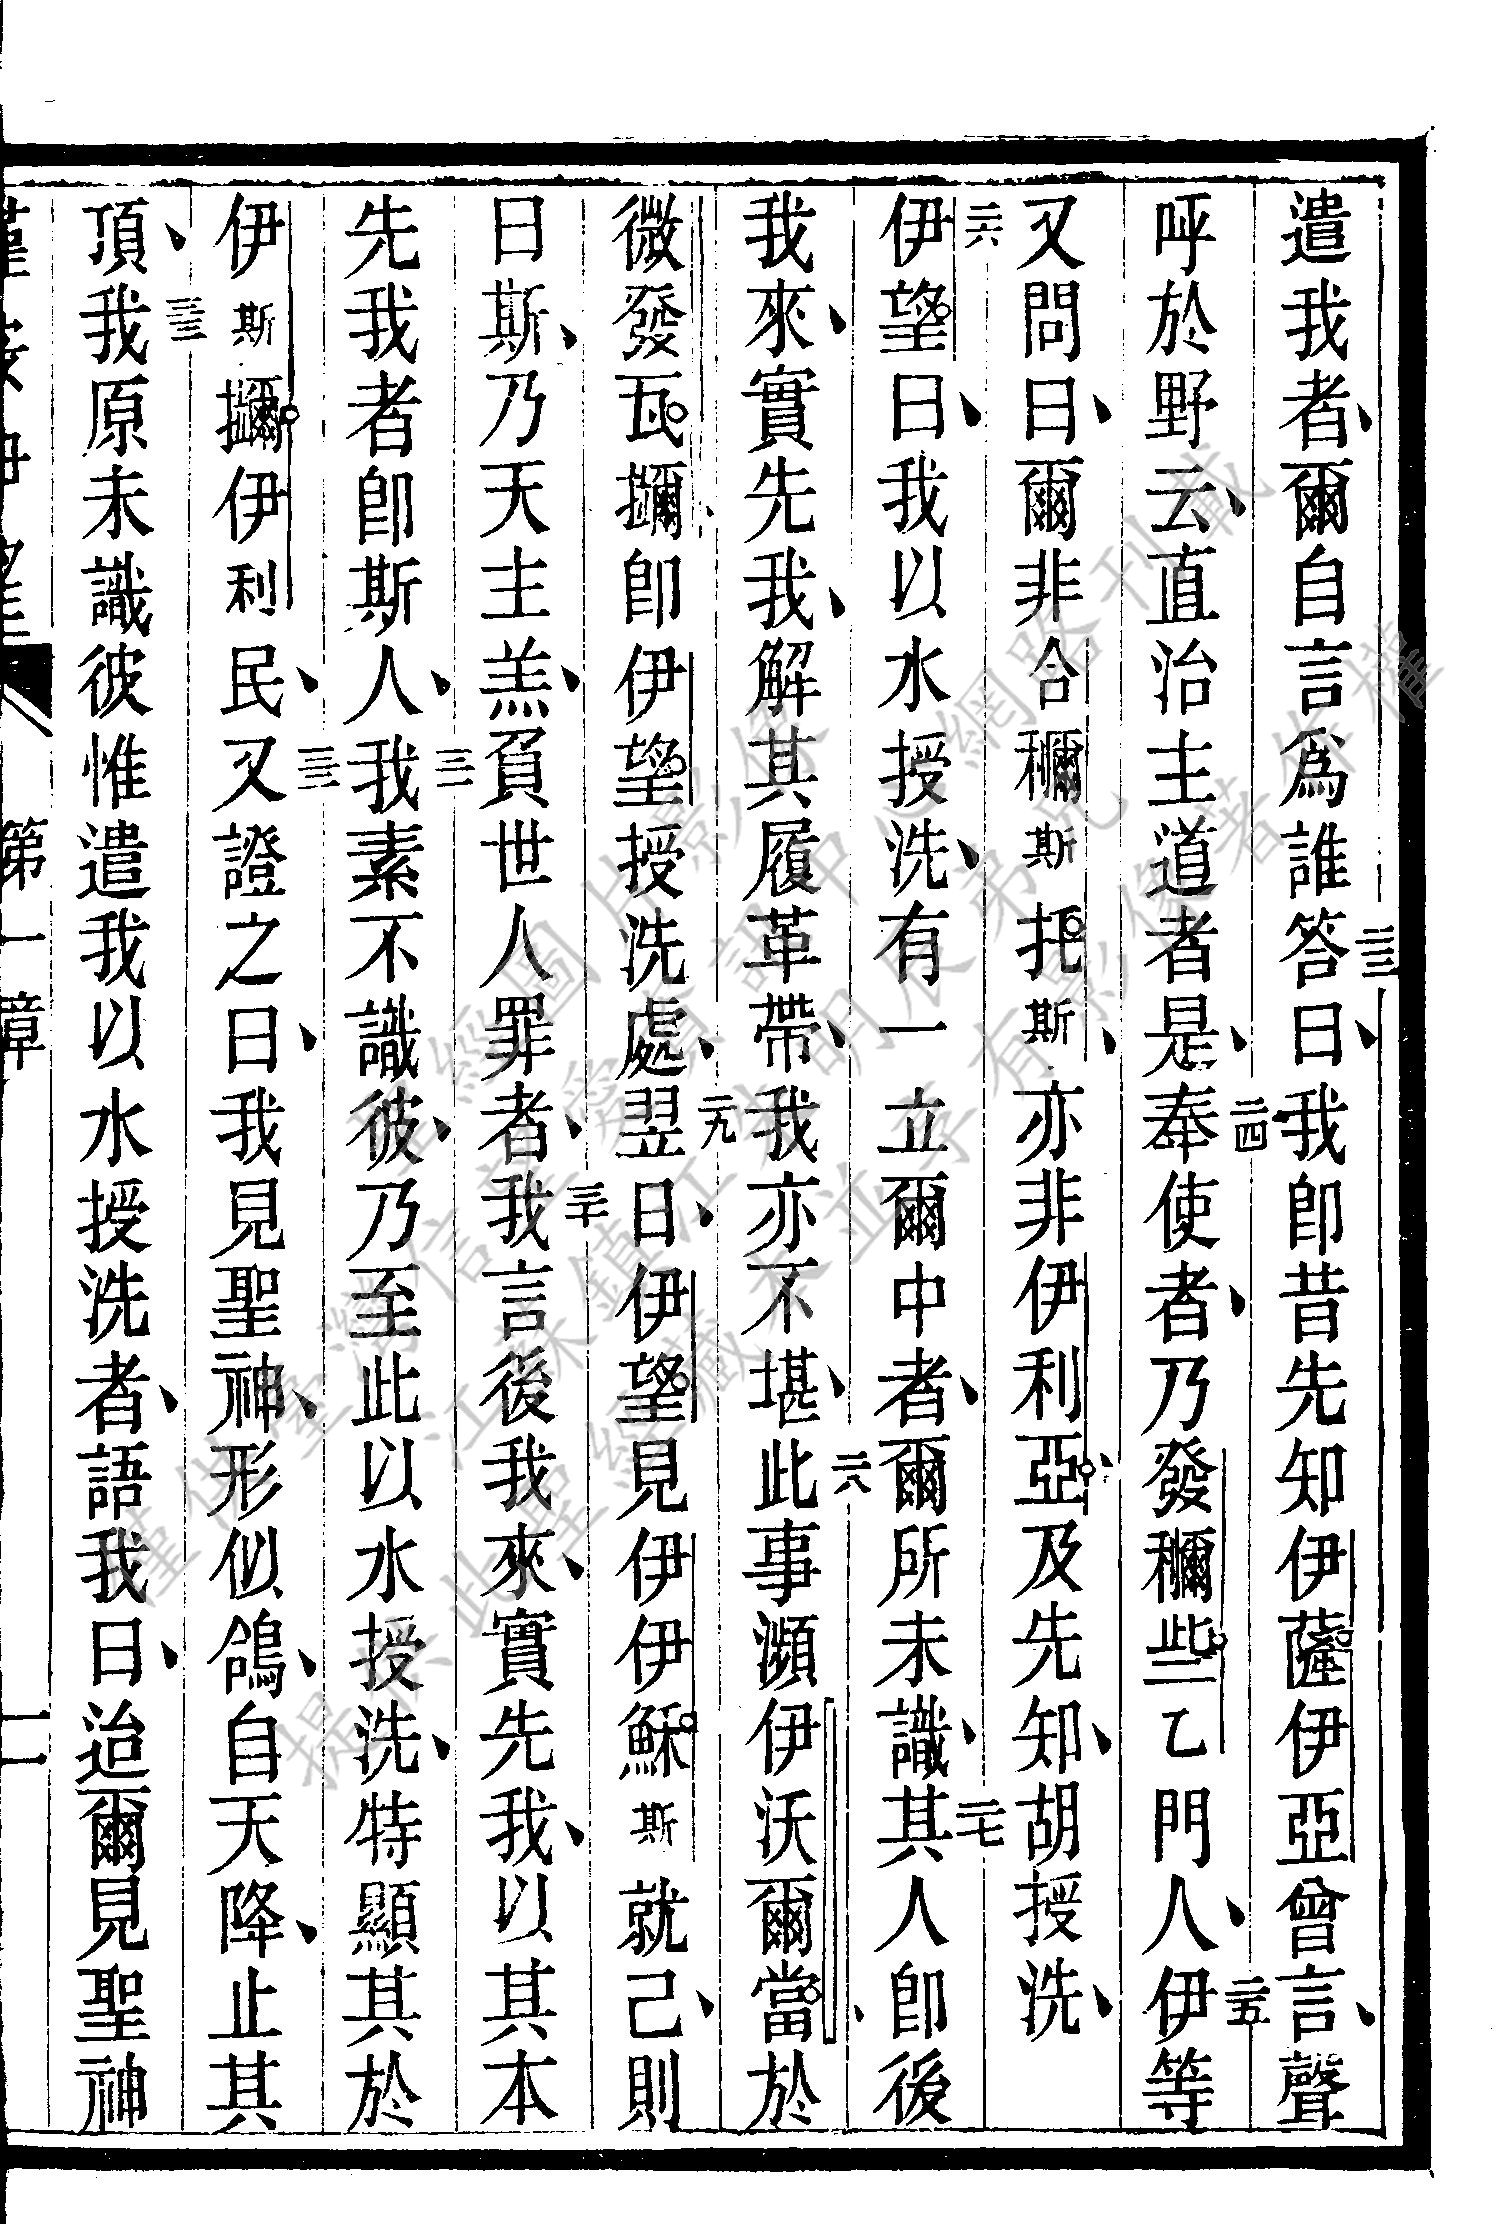 遣我者、爾自言爲誰二三答曰、我卽昔先知伊薩伊亞曾言、聲
呼於野云、直治主道者是、二四奉使者、乃發穪些乙門人、二五伊等
又問曰、爾非合穪斯托斯、亦非伊利亞、及先知、胡授洗、
二六伊望曰、我以水授洗、有一立爾中者、爾所未識、二七其人卽後
我來、實先我、我解其履革帶、我亦不堪、二八此事瀕伊沃爾當、於
微發瓦擟、卽伊望授洗處、二九翌日、伊望見伊伊穌斯就己、則
曰、斯乃天主羔、負世人罪者、三十我言後我來、實先我、以其本
先我者卽斯人、三一我素不識彼、乃至此以水授洗、特顯其於
伊斯擟伊利民、三二又證之曰、我見聖神、形似鴿、自天降、止其
頂、三三我原未識彼惟遣我以水授洗者、語我曰、迨爾見聖神
第一章
二